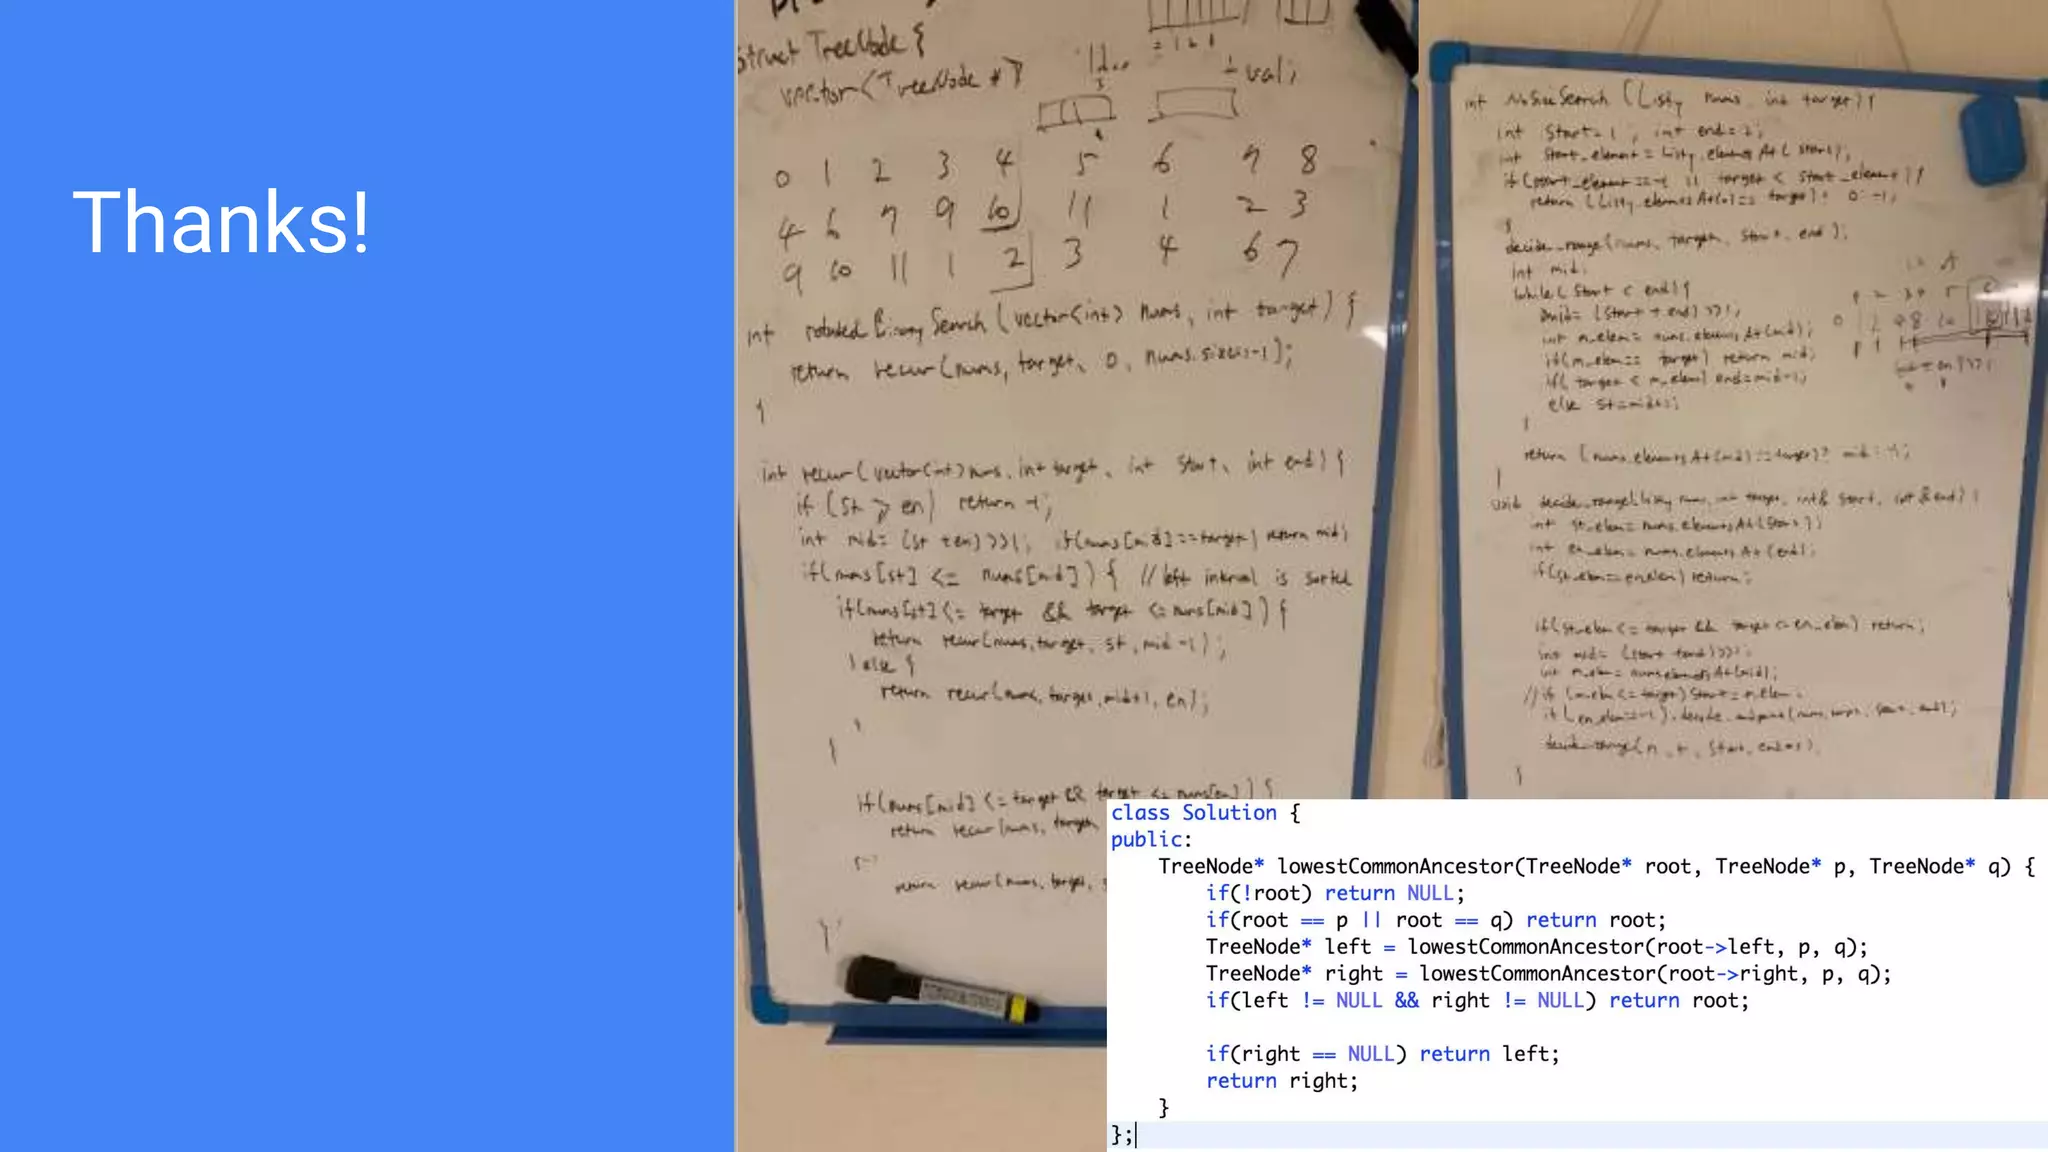 Thanks!
struct TreeNode {
vector<TreeNode *>
val;
0 1 2 3 4 5 6 7 8
4 6 7 9 10 11 1 2 3
9 10 11 1 2 3 4 6 7
int rotated Binary Search (vector<int> nums, int target) {
return recur(nums, target, 0, nums.size()-1);
}
int recur(vector<int> nums, int target, int start, int end) {
if (st > en) return -1;
int mid = (st + en) >> 1; if(nums[mid]==target) return mid;
if(nums[st] <= nums[mid]) { // left interval is sorted
if(nums[st] <= target && target <= nums[mid]) {
return recur(nums, target, st, mid-1);
} else {
return recur(nums, target, mid+1, en);
}
}
if(nums[mid] <= target && target <= nums[en]) {
return recur(nums, target,
return recur(nums, target,
}
int NoSizeSearch (Listy nums, int target) {
int start=1, int end=2;
int start_element = Listy.elementsAt(start);
if(start_element == -1 || target < start_element) {
return (Listy.elementsAt(0) == target) ? 0 : -1;
}
decide_range(nums, target, start, end);
int mid;
while( start < end) {
mid = (start + end) >> 1;
int m_elem = nums.elementsAt(mid);
if(m_elem == target) return mid;
if( target < m_elem) end=mid-1;
else st=mid+1;
}
return (nums.elementsAt(mid)==target)? mid : -1;
}
void decide_range(Listy nums, int target, int& start, int& end) {
int st_elem = nums.elementsAt(start);
int en_elem = nums.elementsAt(end);
if(st_elem == en_elem) return;
if(st_elem <= target && target <= en_elem) return;
int mid = (start + end) >> 1;
int m_elem = nums.elementsAt(mid);
// if (m_elem <= target) start = m_elem
class Solution {
public:
TreeNode* lowestCommonAncestor(TreeNode* root, TreeNode* p, TreeNode* q) {
if(!root) return NULL;
if(root == p || root == q) return root;
TreeNode* left = lowestCommonAncestor(root->left, p, q);
TreeNode* right = lowestCommonAncestor(root->right, p, q);
if(left != NULL && right != NULL) return root;
if(right == NULL) return left;
return right;
}
};